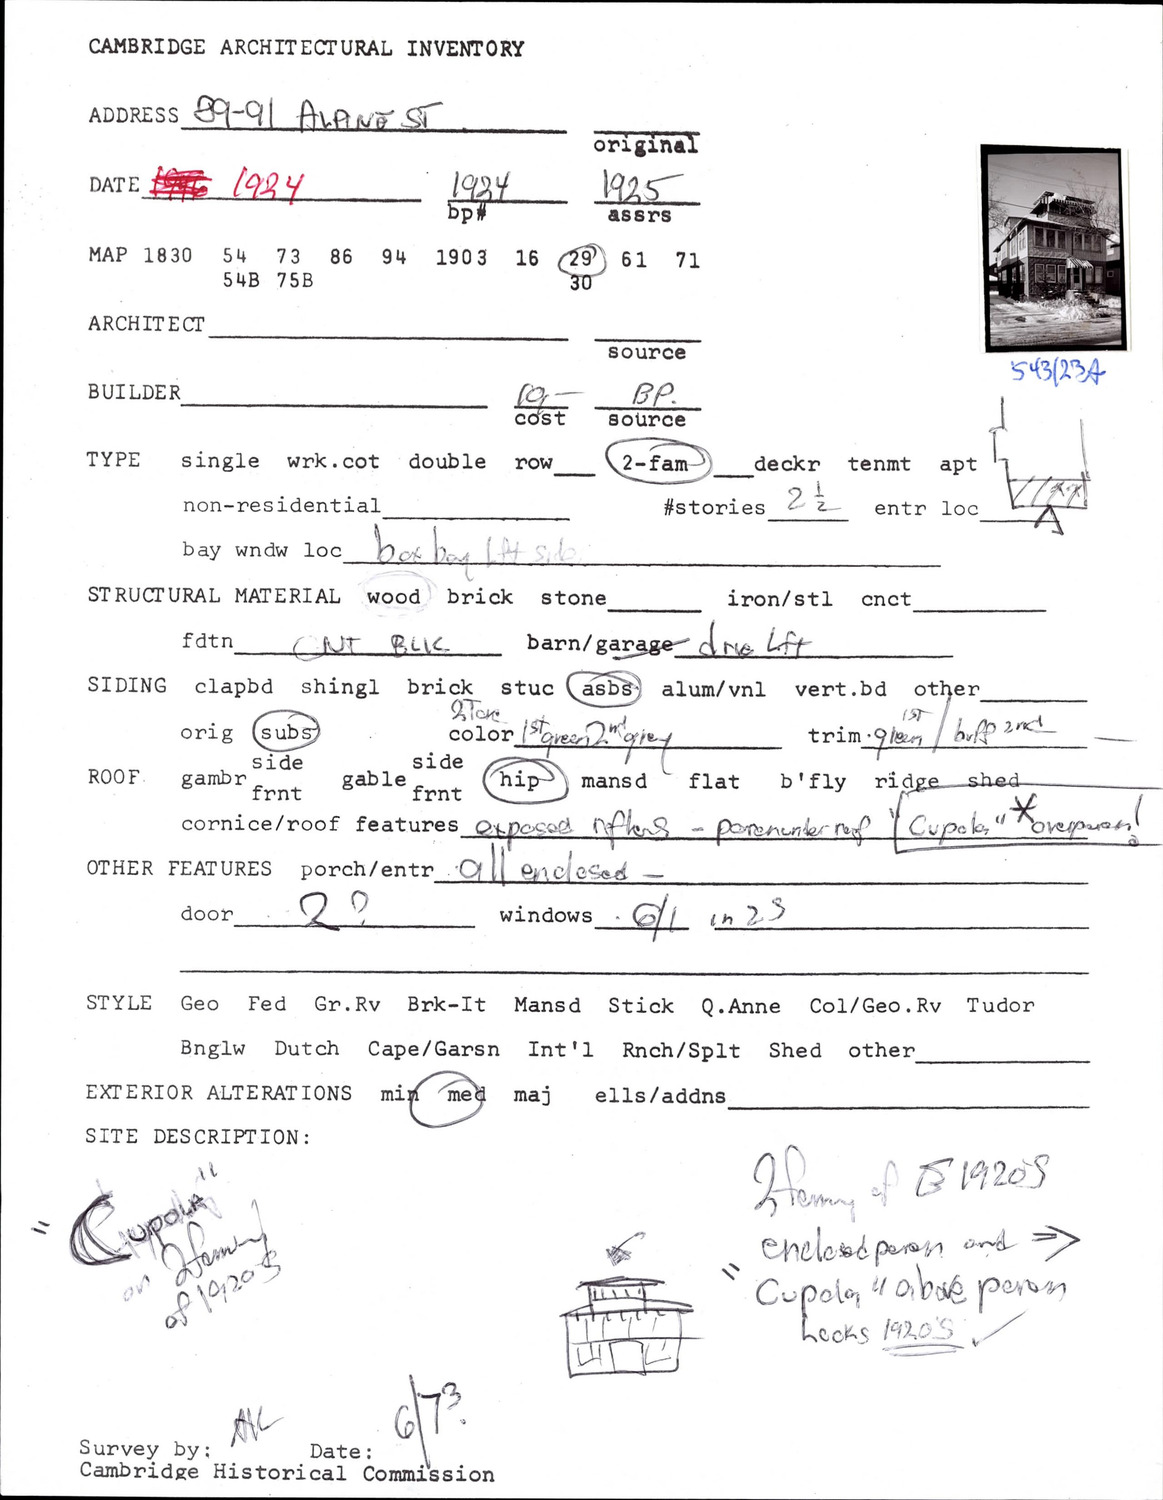 CAMBRIDGE ARCHITECTURAL INVENTORY
ADDRESS 89-91 ALPINE ST
original
DATE 1924 1924 1925
bp# assrs
MAP 1830 54 73 86 94 1903 16 29 61 71
54B 75B 30
543/23A
ARCHITECT
source
BUILDER 10- BP.
cost source
TYPE single wrk.cot double row 2-fam deckr tenmt apt
non-residential #stories 2 1/2 entr loc
bay wndw loc box bay lft side
STRUCTURAL MATERIAL wood brick stone iron/stl cnct
fdtn CNT BLK barn/garage drive lft
SIDING clapbd shingl brick stuc asbs alum/vnl vert.bd other
2 Tone
orig subs color 1st green 2nd grey trim green 1st / buff 2nd
ROOF gambr side frnt gable side frnt hip mansd flat b'fly ridge shed
cornice/roof features exposed rafters - porch under roof "Cupola" *
OTHER FEATURES porch/entr all enclosed -
door 2? windows 6/1 in 2S
STYLE Geo Fed Gr.Rv Brk-It Mansd Stick Q.Anne Col/Geo.Rv Tudor
Bnglw Dutch Cape/Garsn Int'l Rnch/Splt Shed other
EXTERIOR ALTERATIONS min med maj ells/addns
SITE DESCRIPTION:
"Cupola"
on 2 family
of 1920S
2 family of 1920S
enclosed porch and ⇒
"Cupola" above porch
Looks 1920'S ✓
6/73
Survey by: Date:
Cambridge Historical Commission